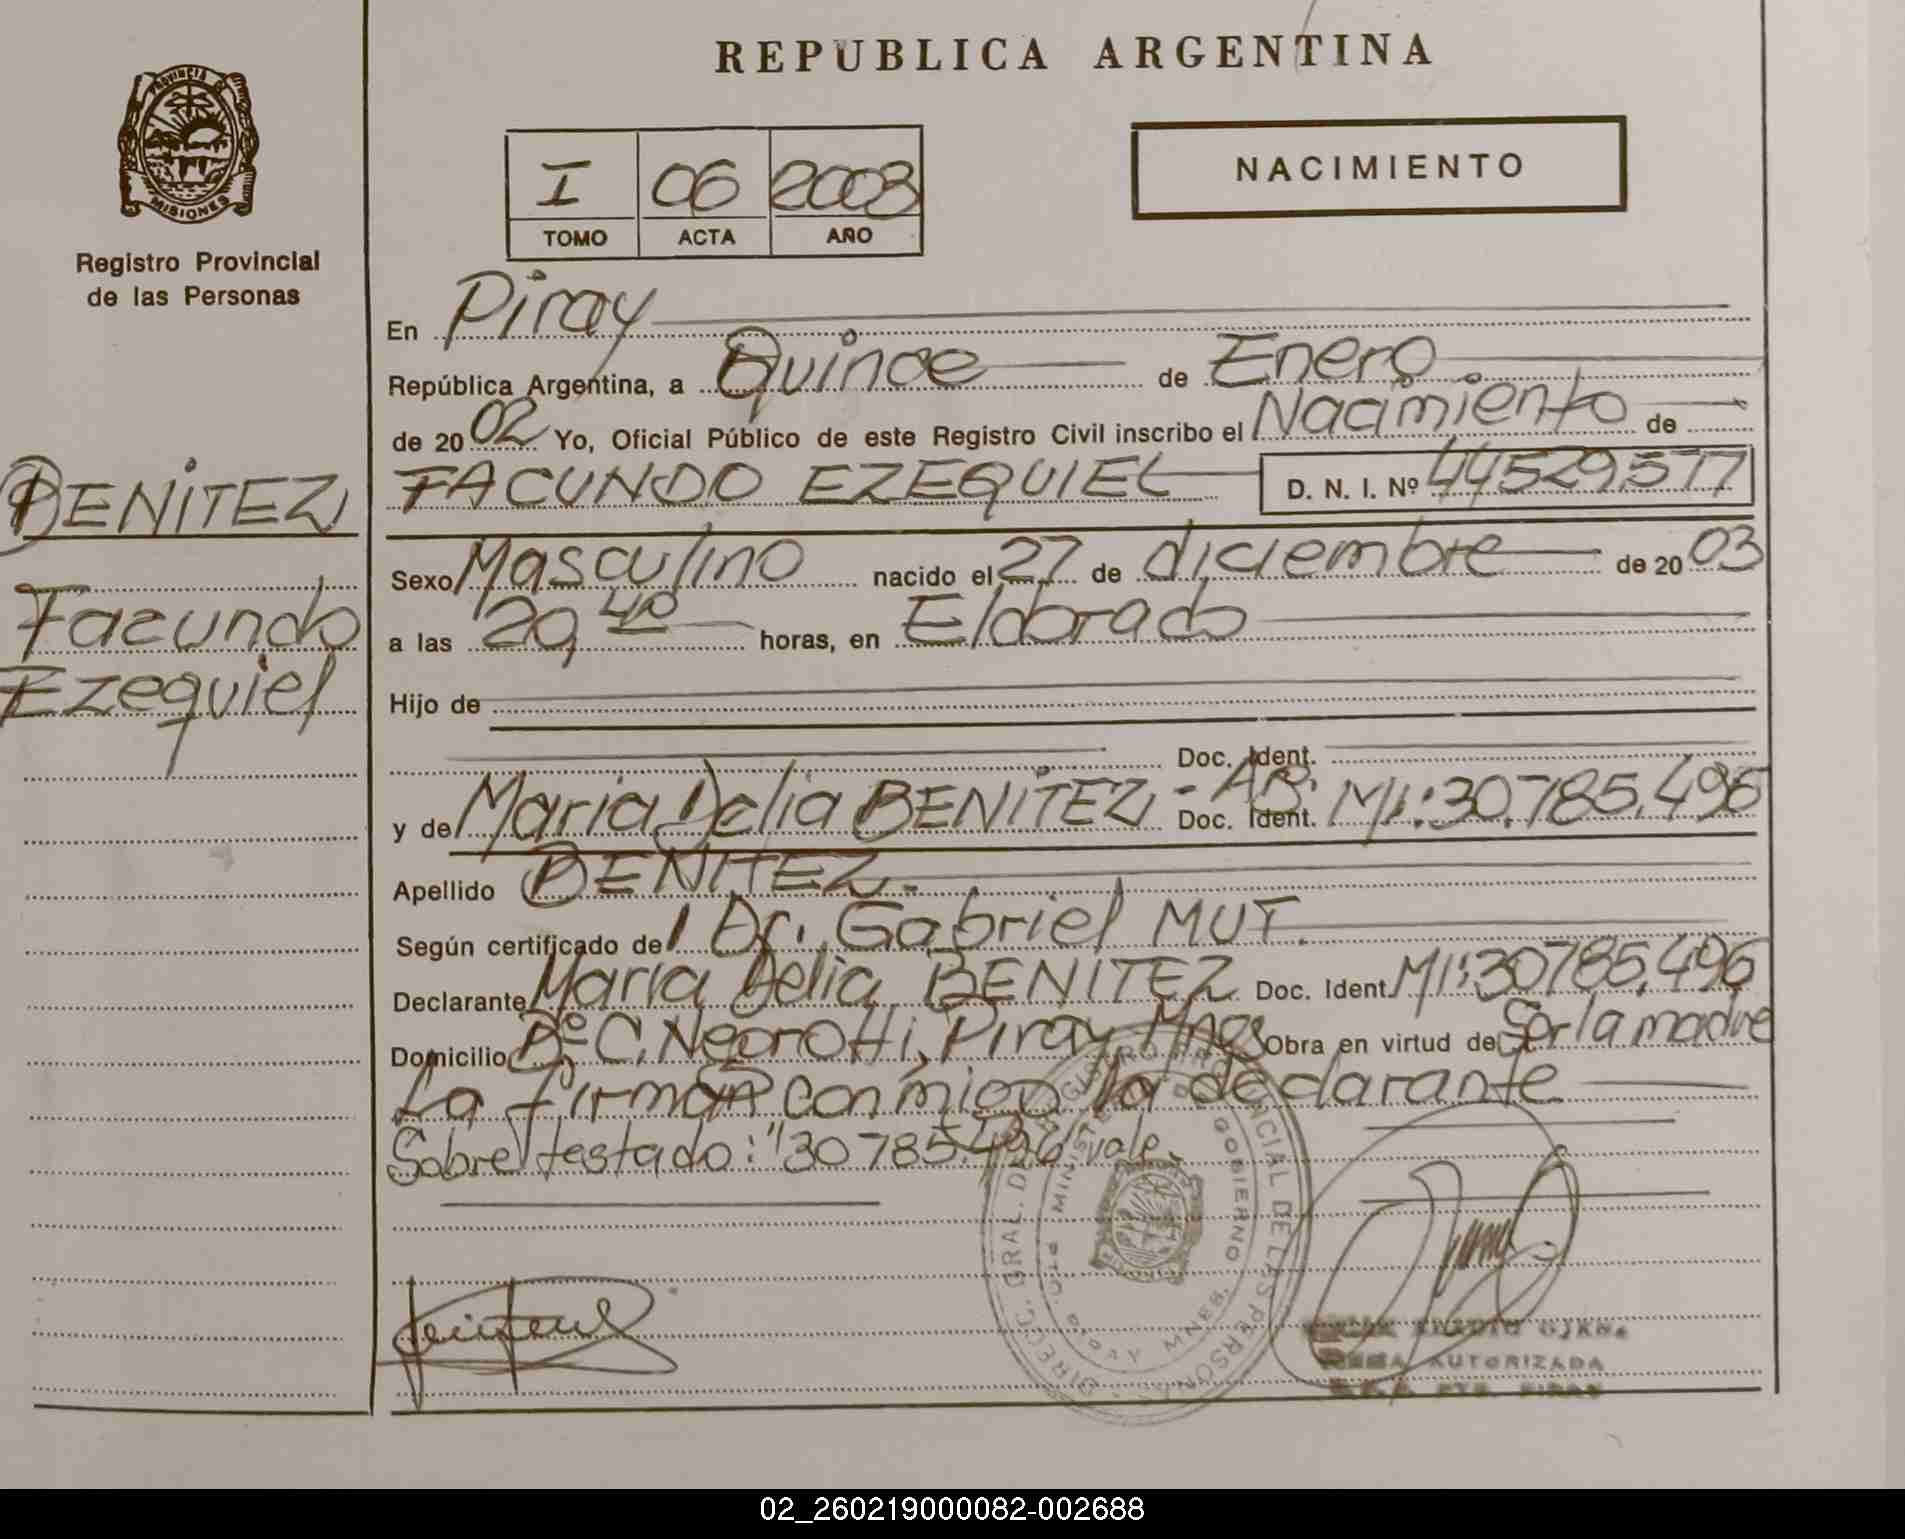 REPUBLICA ARGENTINA
PROVINCIA DE
MISIONES
Registro Provincial
de las Personas
I 06 2003
TOMO ACTA AÑO
NACIMIENTO
En Piray
República Argentina, a Quince de Enero
de 2002 Yo, Oficial Público de este Registro Civil inscribo el Nacimiento de
FACUNDO EZEQUIEL D. N. I. Nº 44529.577
BENITEZ
Facundo
Ezequiel
Sexo Masculino nacido el 27 de diciembre de 2003
a las 20,40 horas, en Eldorado
Hijo de
Doc. Ident.
y de Maria Delia BENITEZ - AR. Doc. Ident. MI:30.785.496
Apellido BENITEZ.
Según certificado del Dr. Gabriel MUT.
Declarante Maria Delia BENITEZ Doc. Ident. MI:30785.496
Domicilio Bº C. Negrotti, Piray Mnes Obra en virtud de Ser la madre
La firman conmigo la declarante
Sobre testado: "30785.496" vale.
DIRECC. GRAL. DEL REGISTRO PROVINCIAL DE LAS PERSONAS
MINISTERIO DE GOBIERNO
PTO. PIRAY MNES.
AUTORIZADA